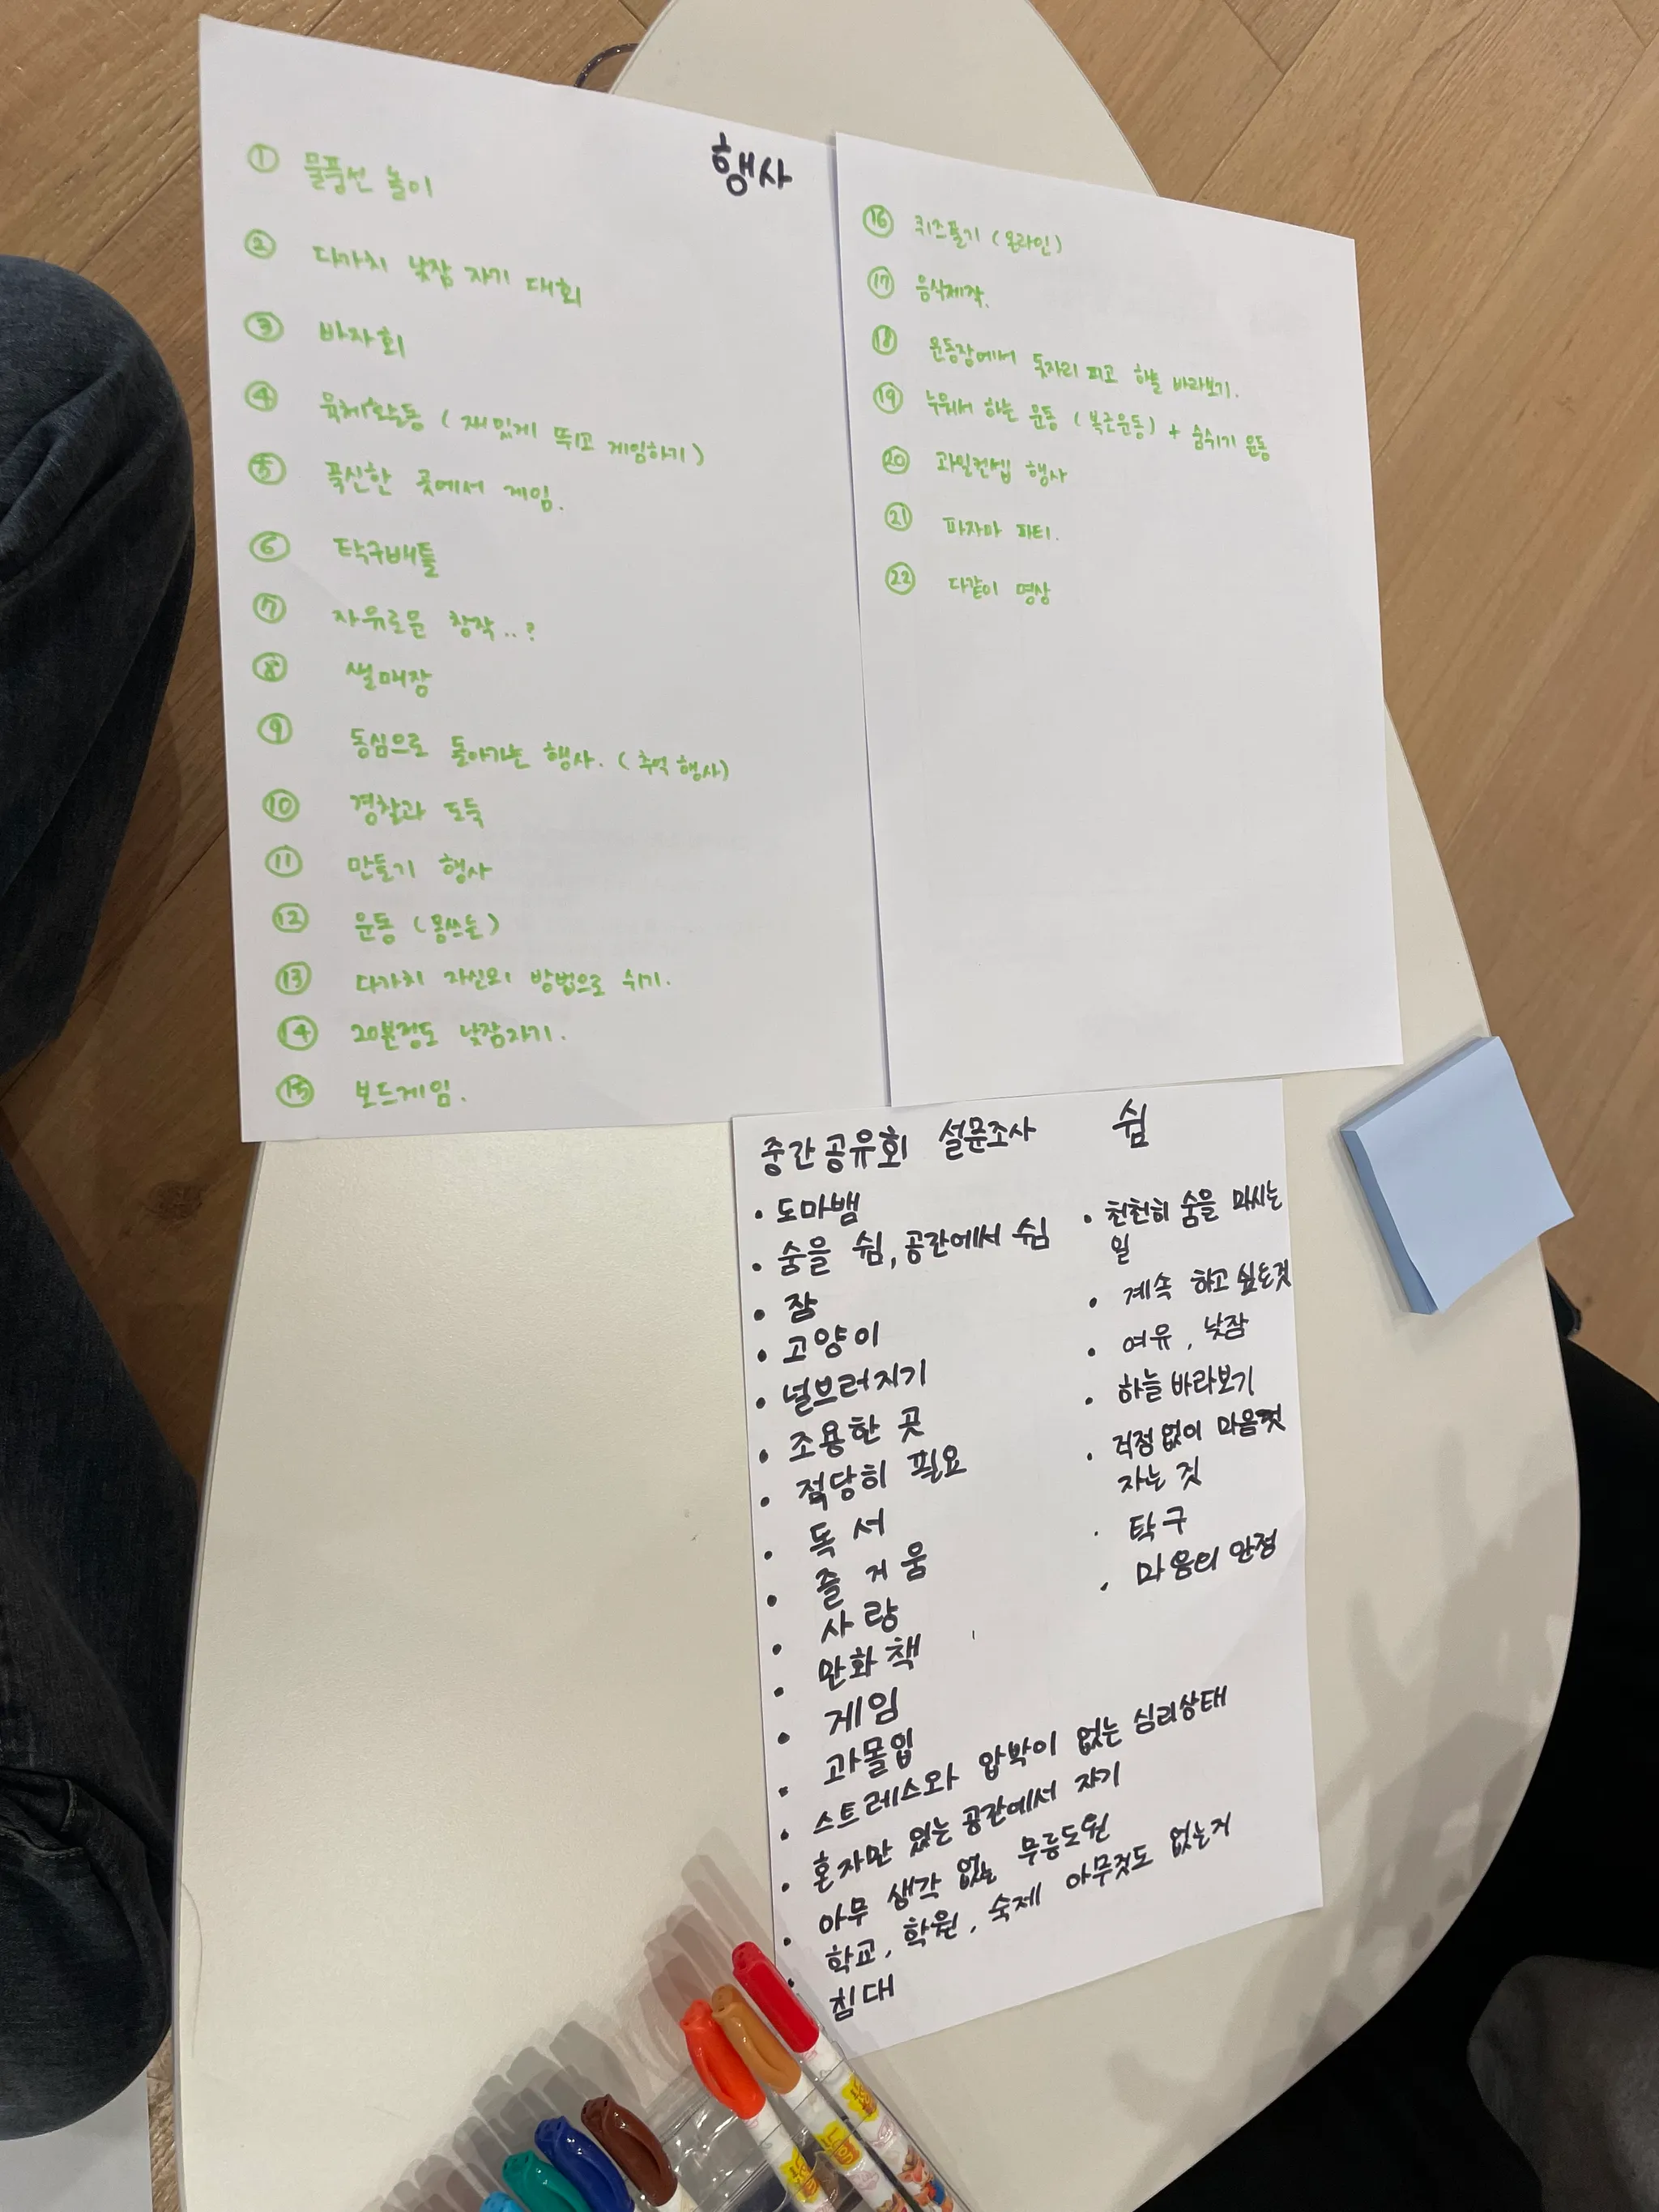 행사
① 물풍선 놀이
② 다가치 낮잠 자기 대회
③ 바자회
④ 육체활동 (재밌게 뛰고 게임하기)
⑤ 푹신한 곳에서 게임.
⑥ 탁구배틀
⑦ 자유로운 창작..?
⑧ 썰매장
⑨ 동심으로 돌아가는 행사. (추억 행사)
⑩ 경찰과 도둑
⑪ 만들기 행사
⑫ 운동 (몸쓰는)
⑬ 다가치 자신의 방법으로 쉬기.
⑭ 20분정도 낮잠자기.
⑮ 보드게임.
⑯ 퀴즈풀기 (온라인)
⑰ 음식제작.
⑱ 운동장에서 돗자리 피고 하늘 바라보기.
⑲ 누워서 하는 운동 (복근운동) + 숨쉬기 운동
⑳ 과일컨셉 행사
㉑ 파자마 파티.
㉒ 다같이 명상
중간공유회 설문조사 쉼
• 도마뱀
• 숨을 쉼, 공간에서 쉼
• 잠
• 고양이
• 널브러지기
• 조용한 곳
• 적당히 필요
• 독서
• 즐거움
• 사랑
• 만화책
• 게임
• 과몰입
• 스트레스와 압박이 없는 심리상태
• 혼자만 있는 공간에서 자기
• 아무 생각 없는 무릉도원
• 학교, 학원, 숙제 아무것도 없는거
• 침대
• 천천히 숨을 마시는
일
• 계속 하고 싶은것
• 여유, 낮잠
• 하늘 바라보기
• 걱정 없이 마음껏
자는 것
• 탁구
• 마음의 안정